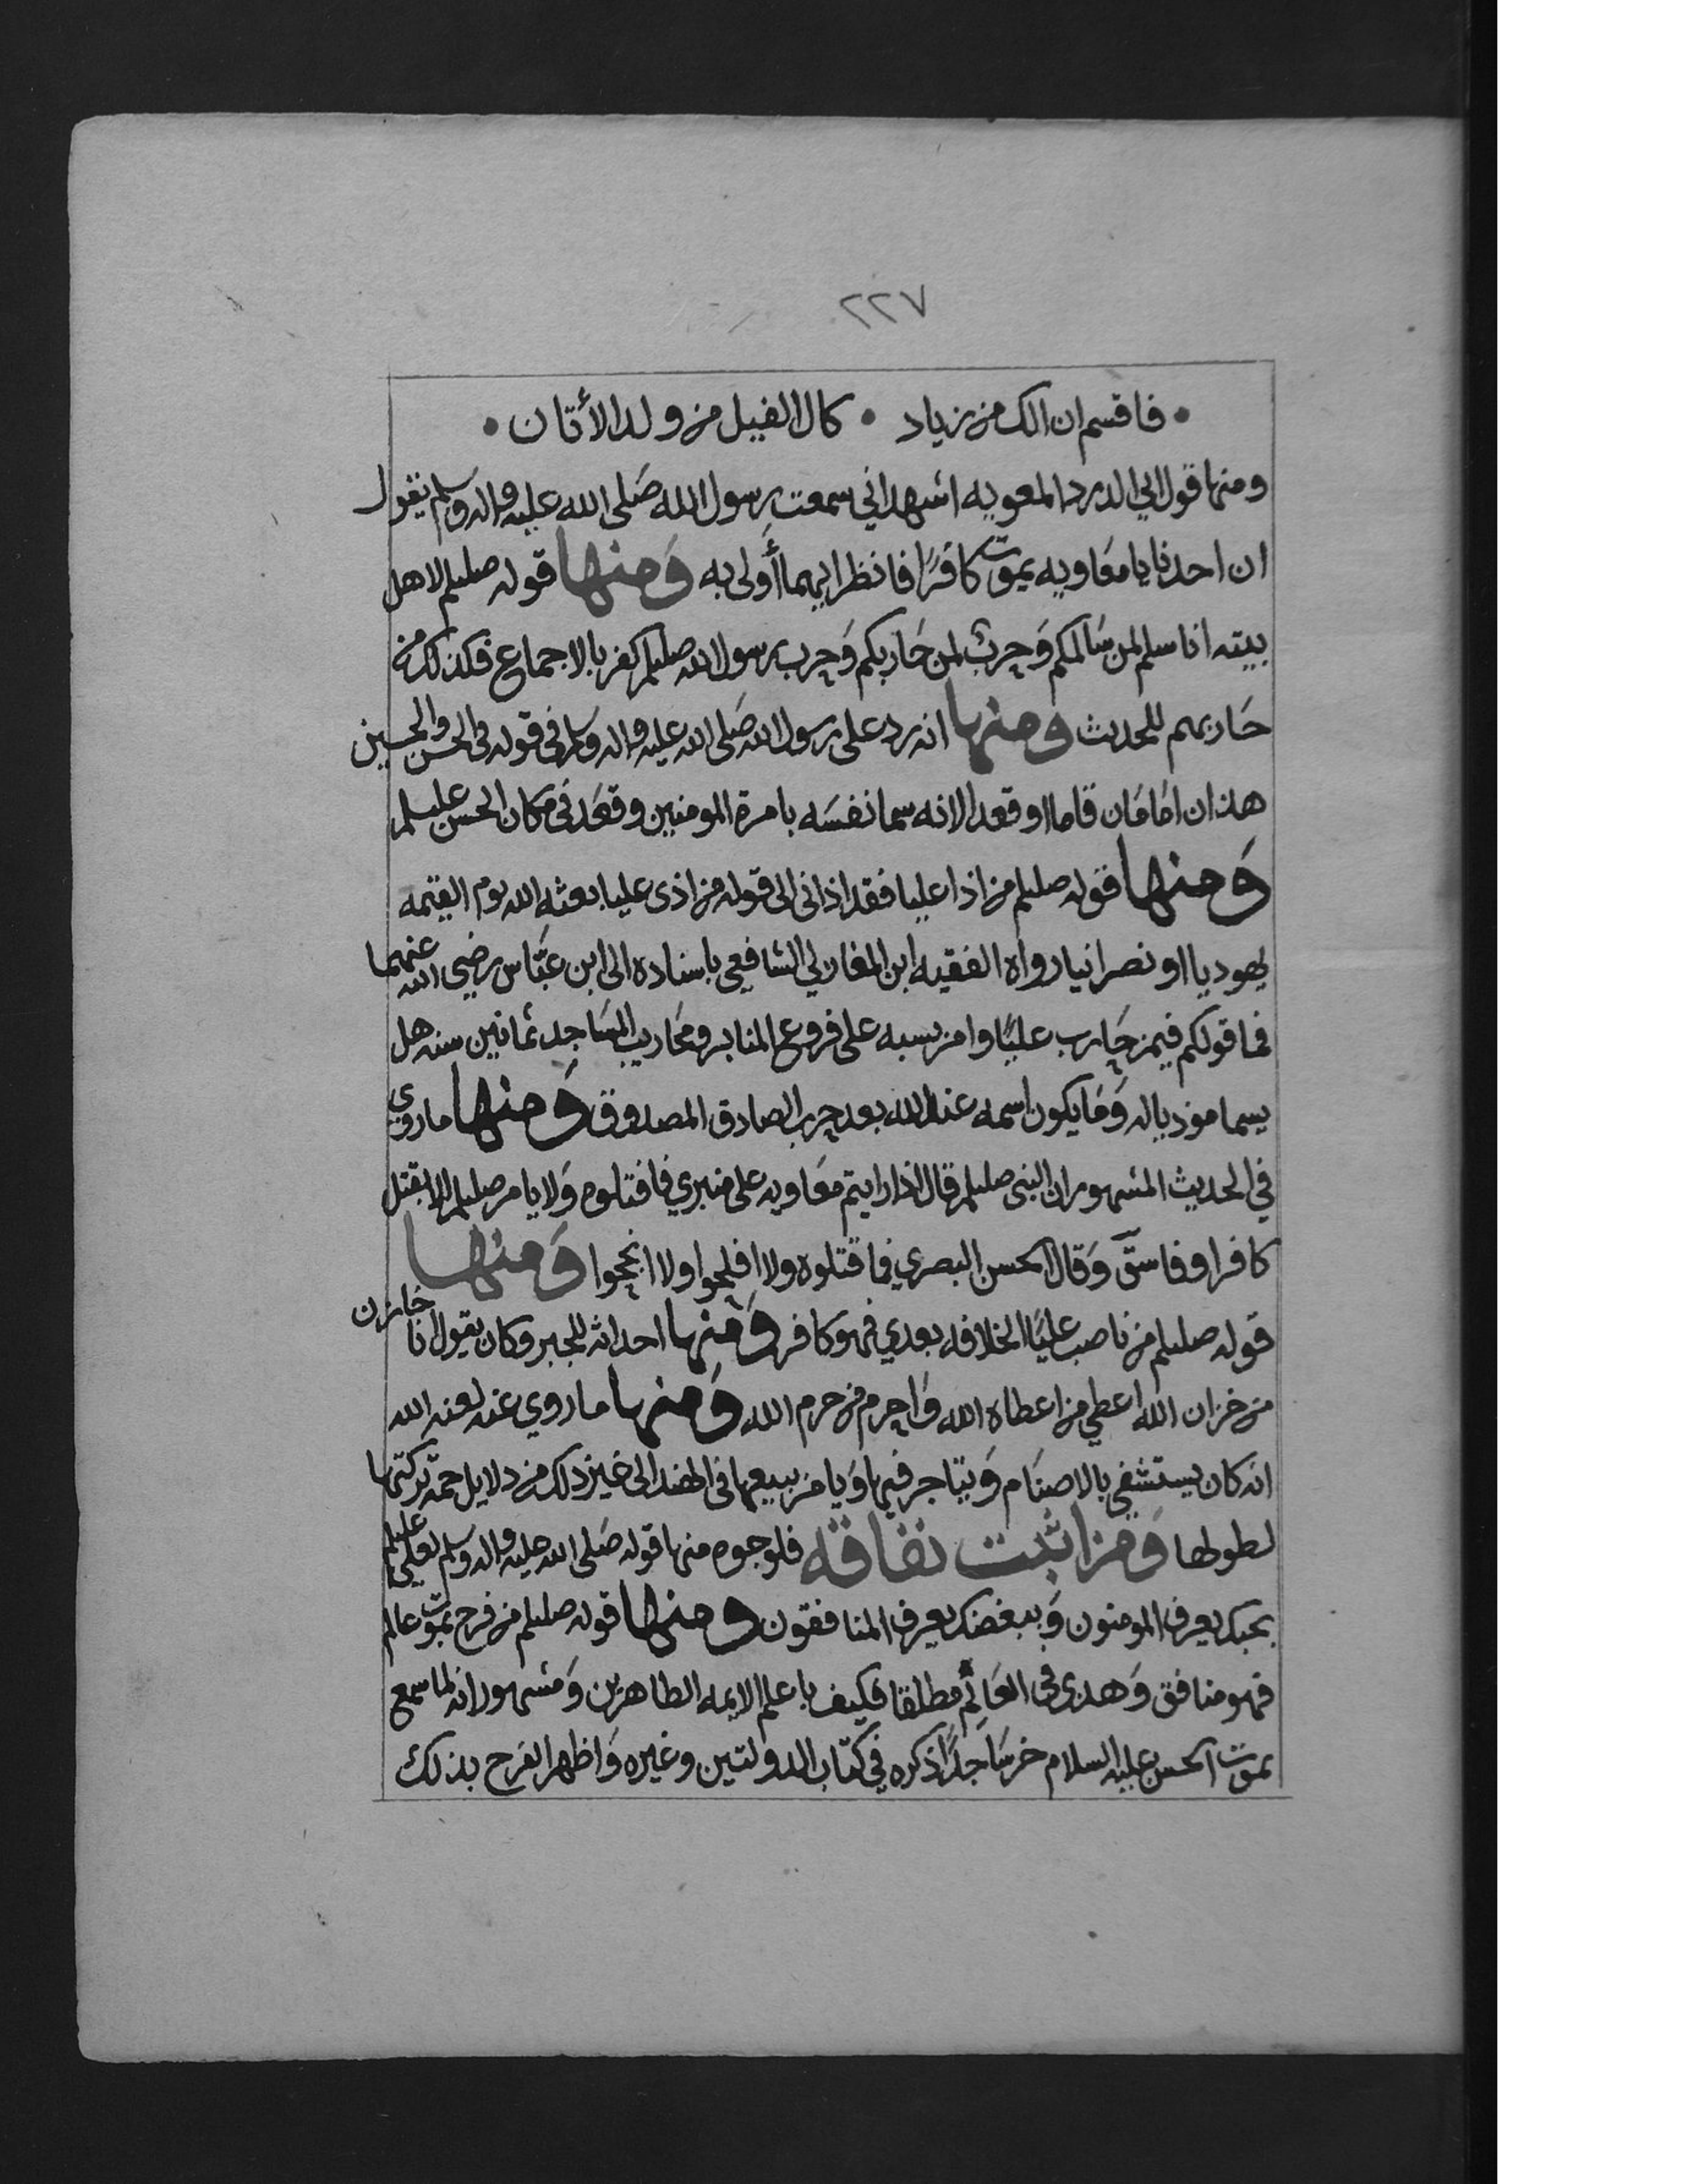 ٢٢٧
• فاقسم ان الك من زياد • كال الفيل من ولد الأتان •
ومنها قول ابي الدردا لمعويه اشهد اني سمعت رسول الله صَلى الله عليه واله وسلم يقول
ان احدنا يا معَاويه يموت كافرًا فانظر ايهما أولى به وَمنها قوله صللم لاهل
بيته انا سلم لمن سَالمكم وَحربٌ لمن حَاربكم وَحرب رسول الله صللم كفر بالاجماع فكذلك من
حَاربهم للحديث ومنها انه رد على رسول الله صَلى الله عليه واله وسلم في قوله في الحسن والحسين
هذان امَامَان قاما او قعدا لانه سما نفسَه بامرة المومنين وقعَد في مكان الحسن عليلم
وَمنها قوله صللم من اذا عليا فقد اذاني الى قوله من اذى عليا بعثه الله يوم القيمه
يهوديا او نصرانيا رواه الفقيه ابن المغازلي الشافعي باسناده الى ابن عبَّاس رضي الله عنهما
فما قولكم فيمن حَارب عليًا وامر بسبه على فروع المنابر ومحَاريب المسَاجد ثمانين سنه هل
يسما موذيا له وَمَا يكون اسمه عند الله بعد حرب الصادق المصدوق وَمنها ما روي
في الحديث المشهور ان النبي صللم قال اذا رايتم معَاويه على منبري فاقتلوه وَلا يامر صللم الا بقتل
كافر او فاسق وَقال الحسن البصري فما قتلوه ولا افلحوا ولا انجحوا وَمنها
قوله صللم من ناصب عليًا الخلافه بعدي فهو كافر وَمنها احداثه للجبر وكان يقول انا خازن
من خزان الله اعطي من اعطاه الله وَاحرم من حرم الله وَمنها ما روي عنه لعنه الله
انه كان يستشفي بالاصنَام وَيتاجر فيها وَيامر ببيعها في الهند الى غير ذلك من دلايل جمة تركتها
لطولها وَمن اثبت نفاقه فلوجوه منها قوله صَلى الله عليه واله وسلم لعلي عليلم
بحبك يعرف المومنون وَببغضك يعرف المنافقون ومنها قوله صللم من فرح بموت عالم
فهو منافق وَهذى في العَالِم مطلقا فكيف باعلم الايمه الطاهرين وَمشهور انه لما سمع
بموت الحسن عليه السلام خر سَاجدًا ذكره في كتاب الدولتين وغيره وَاظهر الفرح بذلك